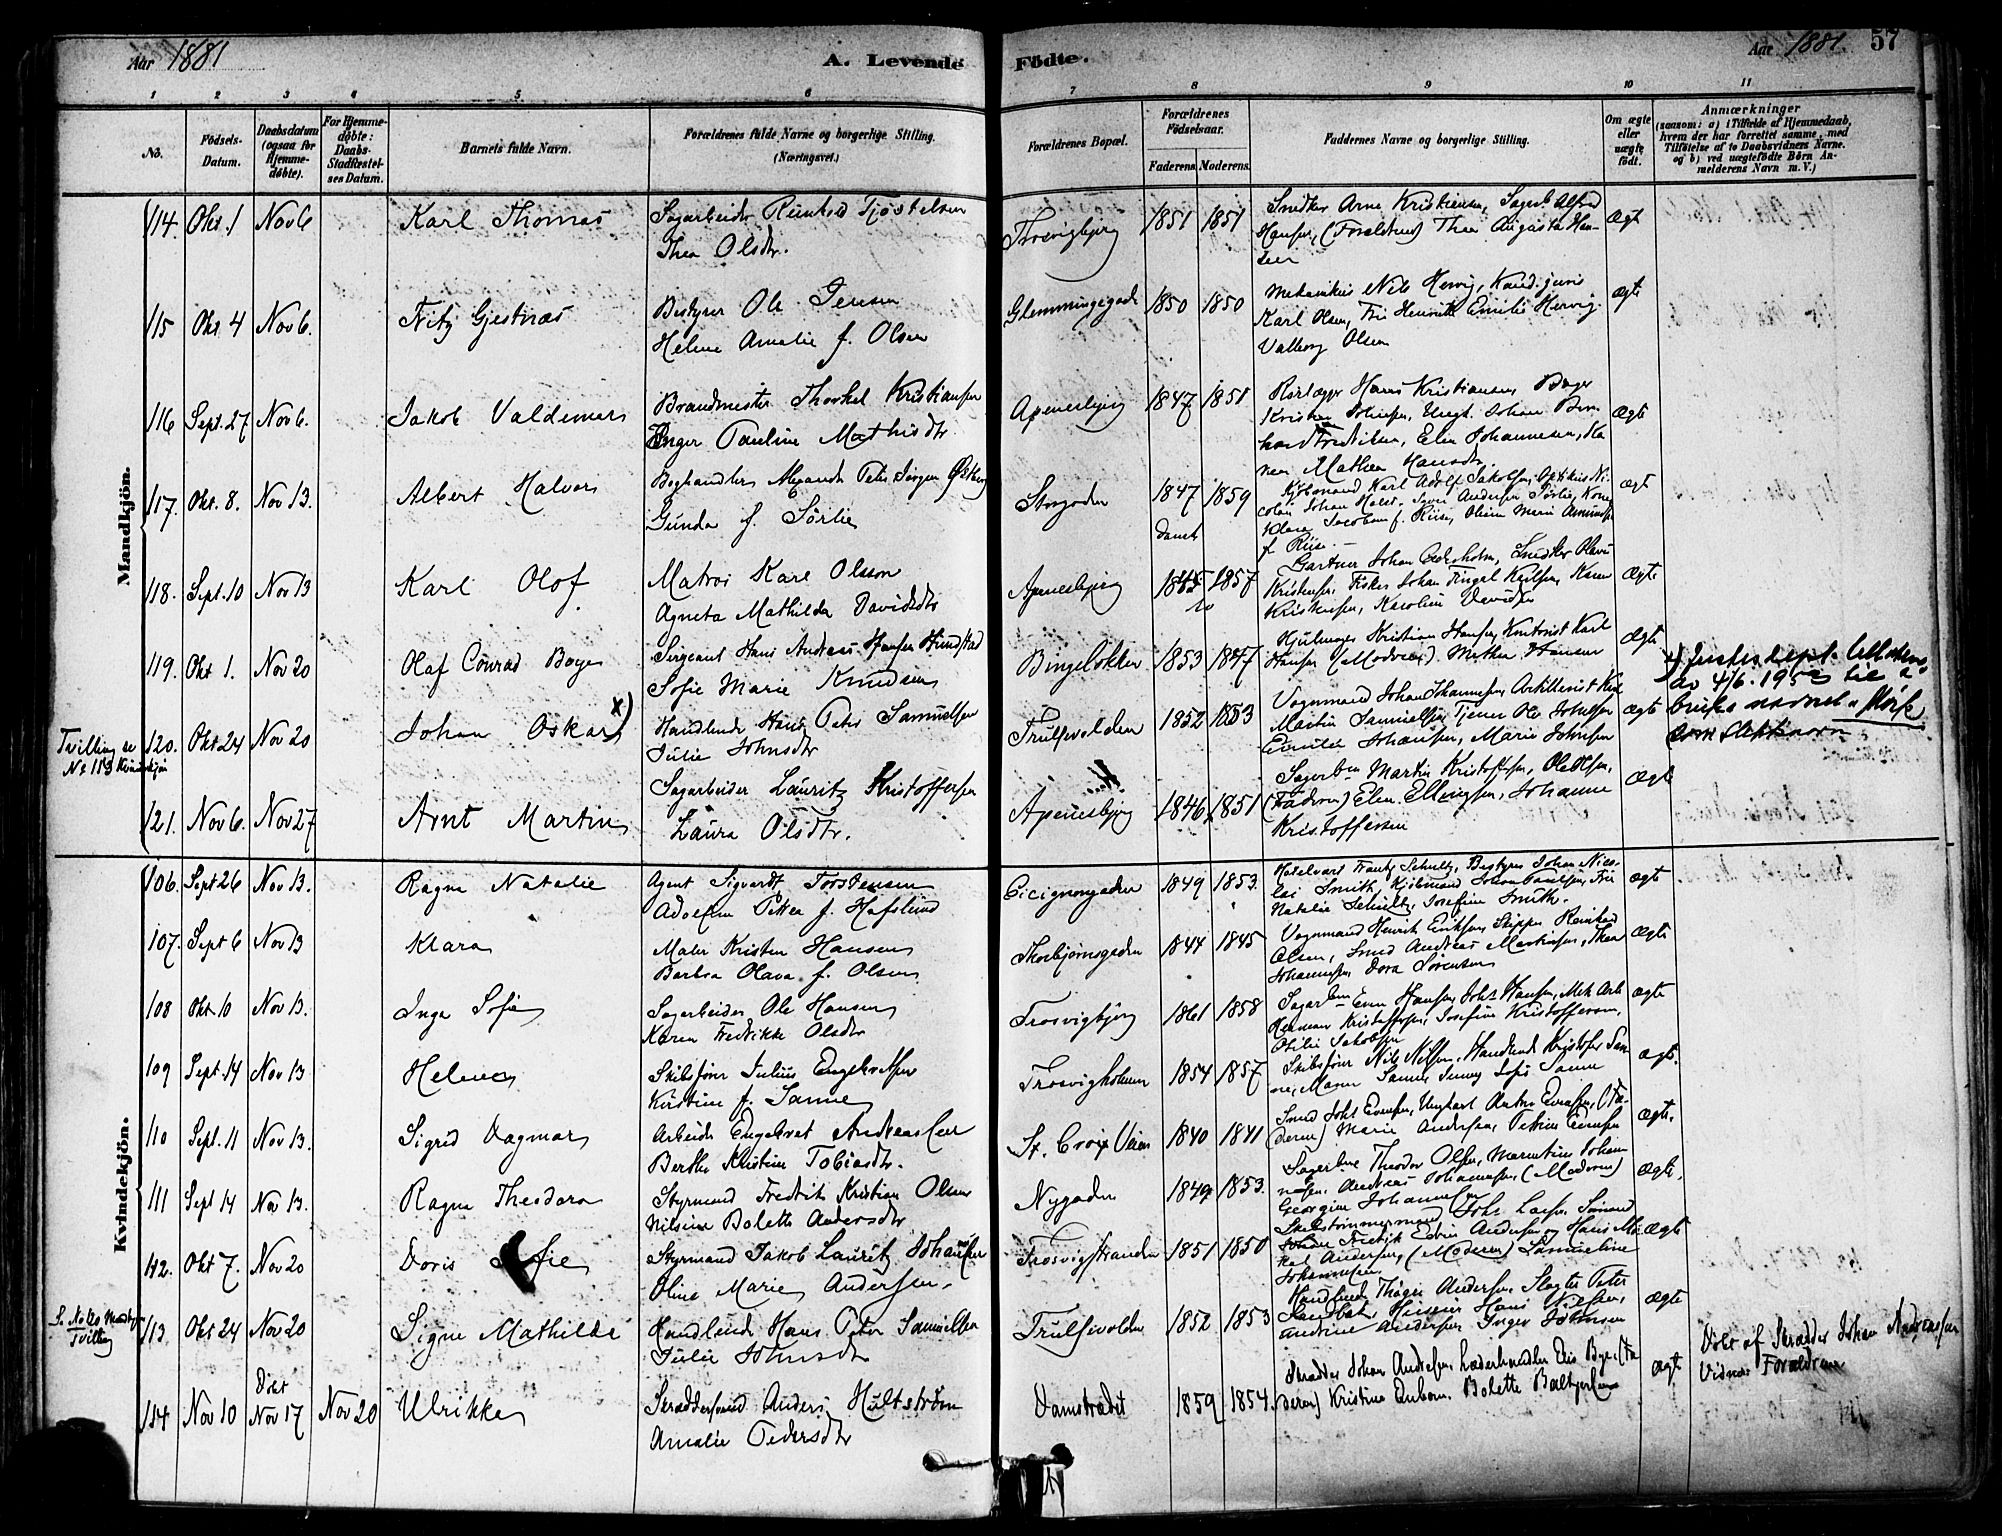 Aar 1881
A. Levende Födte.
Aar 1881. 57
1 2 3 4 5 6 7 8 9 10 11
No.
Födsels-Datum.
Daabsdatum (ogsaa for Hjemme-döbte).
For Hjemme-döbte: Daabs-Stadfæstel-ses Datum.
Barnets fulde Navn.
Forældrenes fulde Navne og borgerlige Stilling. (Næringsvei.)
Forældrenes Bopæl.
Forældrenes Födselsaar.
Faderens. Moderens.
Faddernes Navne og borgerlige Stilling.
Om ægte eller uægte födt.
Anmærkninger
(saasom: a) i Tilfælde af Hjemmedaab,
hvem der har forrettet samme, med
Tilföielse af to Daabsvidners Navne.
og b) ved uægtefödte Börn An-
melderens Navn m. V.)
Mandkjön.
114. Okt. 1 Nov 6 Karl Thomas Sagarbeider Tjøstelsen
Thea Olsdtr.
Trosvigbjerg 1851 1851 Snedker Arne Kristiansen, Alfred
Hansen, (Forældrene) Thea Augusta Han-
sen
Ægte
115 Okt. 4 Nov 6. Fritz Gjestnæs Bestyrer Ole Jensen
Helene Amalie f. Olsen
Glemmingegade 1850 1850 Mekanikus Nils Hervig, Kand. juris
Karl Olsen, Fru Henriette Emilie Hervig.
Valborg Olsen
ægte
116 Sept. 27 Nov 6. Jakob Valdemar Brandmester Thorkel Kristiansen
Inger Pauline Mathisdtr.
Apenesbjerg 1847 1851 Rørlægger Hans Kristiansen, Bager
Kristian Johnsen, Ungk. Johan Bern
hard Fredriksen, Elen Johannesen, Ka
ren Mathea Hansdtr
ægte
117. Okt. 8. Nov 13. Albert Halvor Boghandler Alexander Peter Jørgen Østberg
Gunda f. Sørlie
Storgaden 1847 1859
Kjøbmand Karl Adolf Jakobsen, Optikus Ni-
colai Johan Holst, Andersen Sørlie, Kone
Klara Jacobsen f. Riise, Olivia Marie
f. Riise.
ægte
118. Sept. 10 Nov 13 Karl Olof Matros Karl Olsson
Agneta Mathilda Davidsdtr
Apenesbjerg 1857
Gartner Johan Cederholm, Snedker Olavus
Kristensen, Fisker Johan Karen
Kristensen, Karoline Davidsen
Ægte
119. Okt 1. Nov 20 Olaf Conrad Boye Sergeant Hans Andreas Hansen Hundstad
Sofie Marie Knudsen
Bingelokken 1853 1847 Hjulmager Kristian Hansen, Karl
Hansen (Moderen) Mathea Hansen
Ægte
Tvilling se
No 113 Kvindekjøn
120. Okt 24 Nov 20 Johan Oskar x) Handlende Hans Peter Samuelsen
Julie Johnsdtr
Trulsevolden 1852 1853
Vognmand Johan Johannesen, Artillerist Karl
Martin Samuelsen, Tjener Ole Johnsen
Emilie Johansen, Marie Johnsen
ægte
x) Justisdept. tillatelse
av 4/6. 19 til å
bruke navnet "Mørk"
som slektsnavn
121. Nov 6. Nov 27 Arnt Martin Sagarbeider Lauritz Kristoffersen
Laura Olsdtr.
Apenesbjerg 1846 1851
Sagarben Martin Kristoffersen, Ole Olsen,
(Faderen) Elen Ellingsen, Johanne
Kristoffersen
Ægte
Kvindekjön.
106. Sept 26 Nov 13. Ragna Natalie Agent Sigvardt Torstensen
Adolfine Petrea f. Hafslund
Cicignongaden 1849 1853.
Hotelvært Frantz Schultz, Bestyrer Johan Nico-
lai Smith, Kjøbmand Johan Paulsen, Frk
Natalie Schultz, Josefine Smith.
ægte
107. Sept 6 Nov 13 Klara Maler Kristen Hansen
Barbra Olava f. Olsen
Thorbjørnsgaden 1844 1845
Vognmand Henrik Eriksen, Skipper Reinhard
Olsen, Smed Andreas Martinsen, Thea
Johannesen, Dora Sørensen
ægte
108 Okt 10 Nov 13. Inga Sofie Sagarbeider Ole Hansen
Karen Fredrikke Olsdtr
Trosvigbjerg 1861 1858
Sagarben Even Hansen, Johs Hansen, Mek Arb
Herman Kristoffersen, Josefine Kristoffersen,
Otilie Jakobsen
ægte
109 Sept. 14 Nov 13 Helene Skibsfører Julius Engebretsen
Kristine f. Sanne
Trosvigholmen 1854 1857
Skibsfører Nils Nilsen, Handlende Kristofer San
ne, Maren Sanne, Jenny Sofie Sanne
ægte.
110 Sept. 11 Nov 13. Sigrid Dagmar Arbeider Engebret Andreassen
Berthe Kristine Tobiasdtr.
St. Croix Veien 1840 1841
Smed Johs Evensen, Ungkarl Anton Evensen, (Fa-
deren) Marie Andersen, Petrine Evensen
ægte.
111 Sept 14 Nov 13. Ragna Theodora Styrmand Fredrik Kristian Olsen
Nilsine Bolette Andersdtr
Nygaden 1849 1853.
Sagarbene Theodor Olsen, Marentius Johan
nesen, Andreas Johannesen, (Moderen)
Georgine Johannesen
ægte.
112. Okt 7. Nov 20 Doris Sofie Styrmand Jakob Lauritz Johansen
Oline Marie Andersen.
Trosvigstranden 1851 1850
Skibstømmermand Johs Larsen, Sømand
Johan Fredrik Edvin Andersen, Hans Mi-
kal Andersen, (Moderen) Samueline
Johannesen
ægte
Se No 120 Mandkjøn
Tvilling
113. Okt 24 Nov 20 Signe Mathilde Handlende Hans Peter Samuelsen
Julie Johnsdtr
Trulsevolden 1852 1853
Handlende Thøger Andersen, Slagter Peter
Sandbæk, Hans Nielsen,
Andrine Andersen, Inger Johnsen
ægte
114 Nov 10 Døbt Nov 17 Nov 20 Ulrikke Skræddersvend Anders Hultstrøm
Amalie Pedersdtr
Damstrædet 1859 1854.
Skrædder Johan Andresen, Læderhandler Bye, (Fa
deren) Kristine Enbom. Bolette Baltzersen
ægte
Døbt af Skrædder Johan Andreassen
Vidner Forældrene